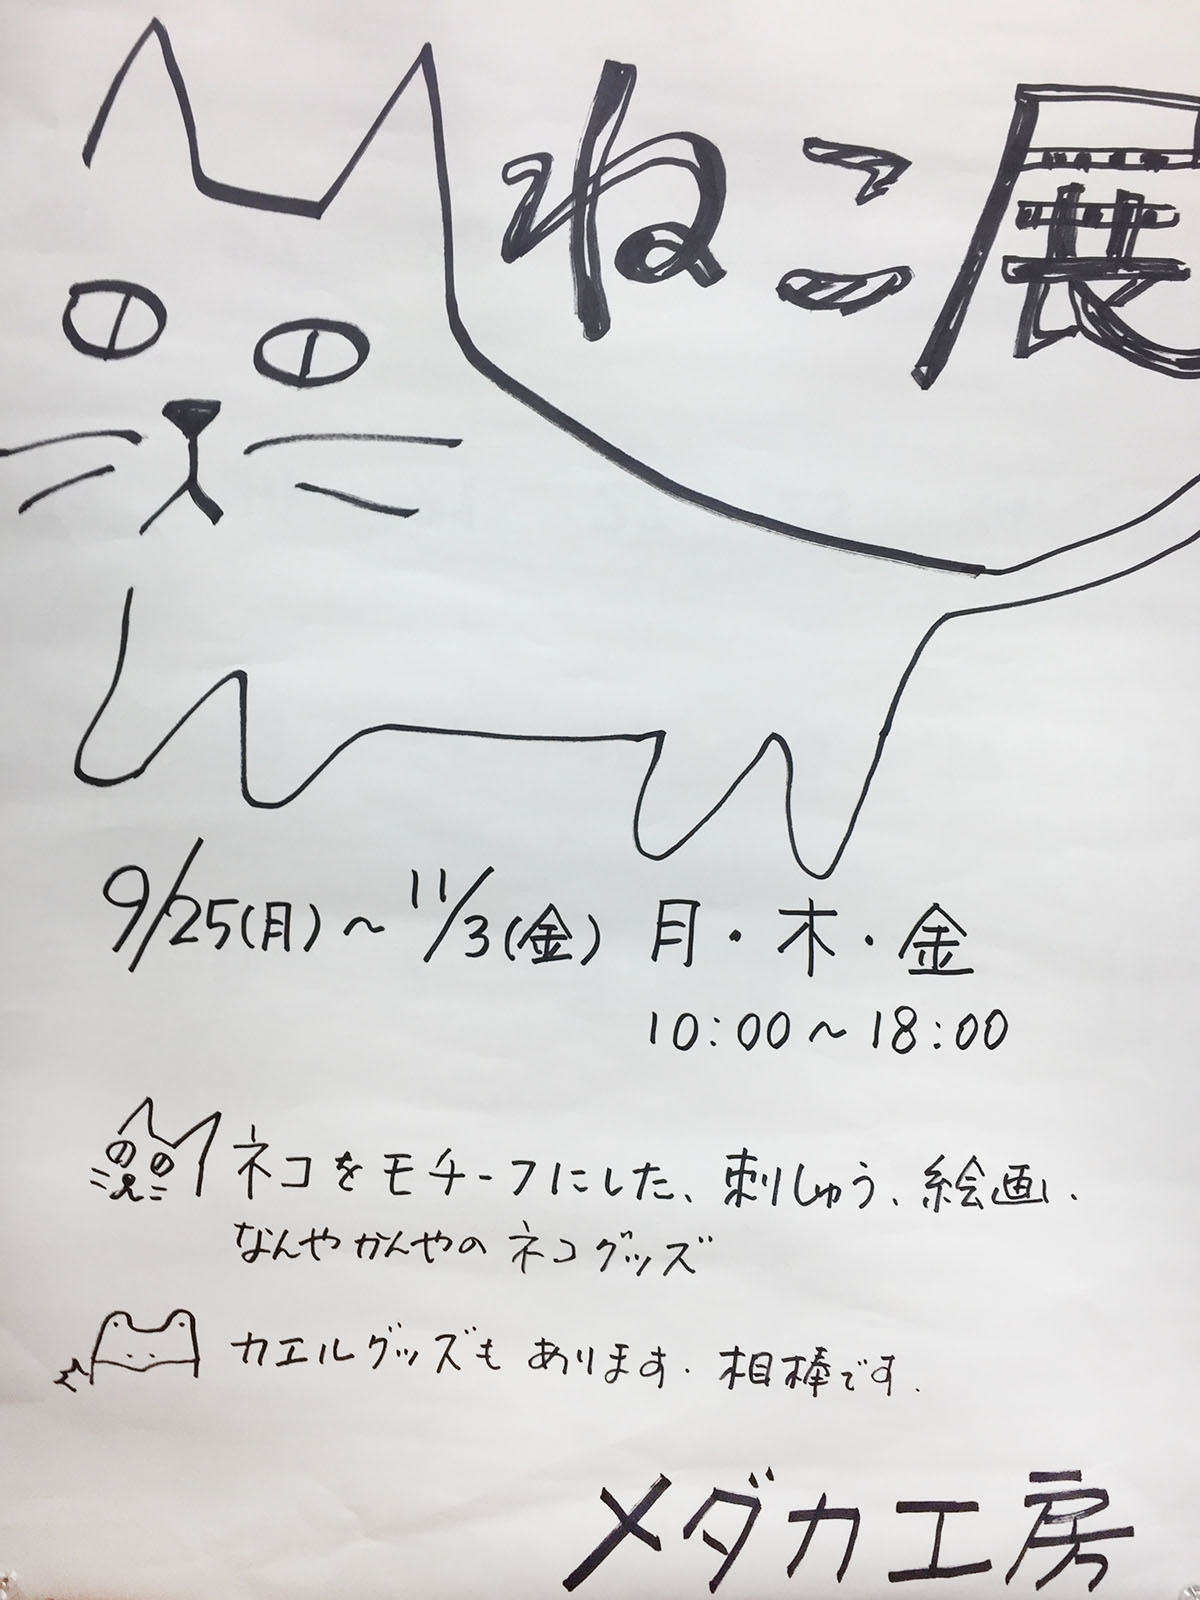 ねこ展
9/25(月)～11/3(金) 月・木・金
10:00～18:00
ネコをモチーフにした、刺しゅう、絵画、
なんやかんやのネコグッズ
カエルグッズもあります. 相棒です.
メダカ工房